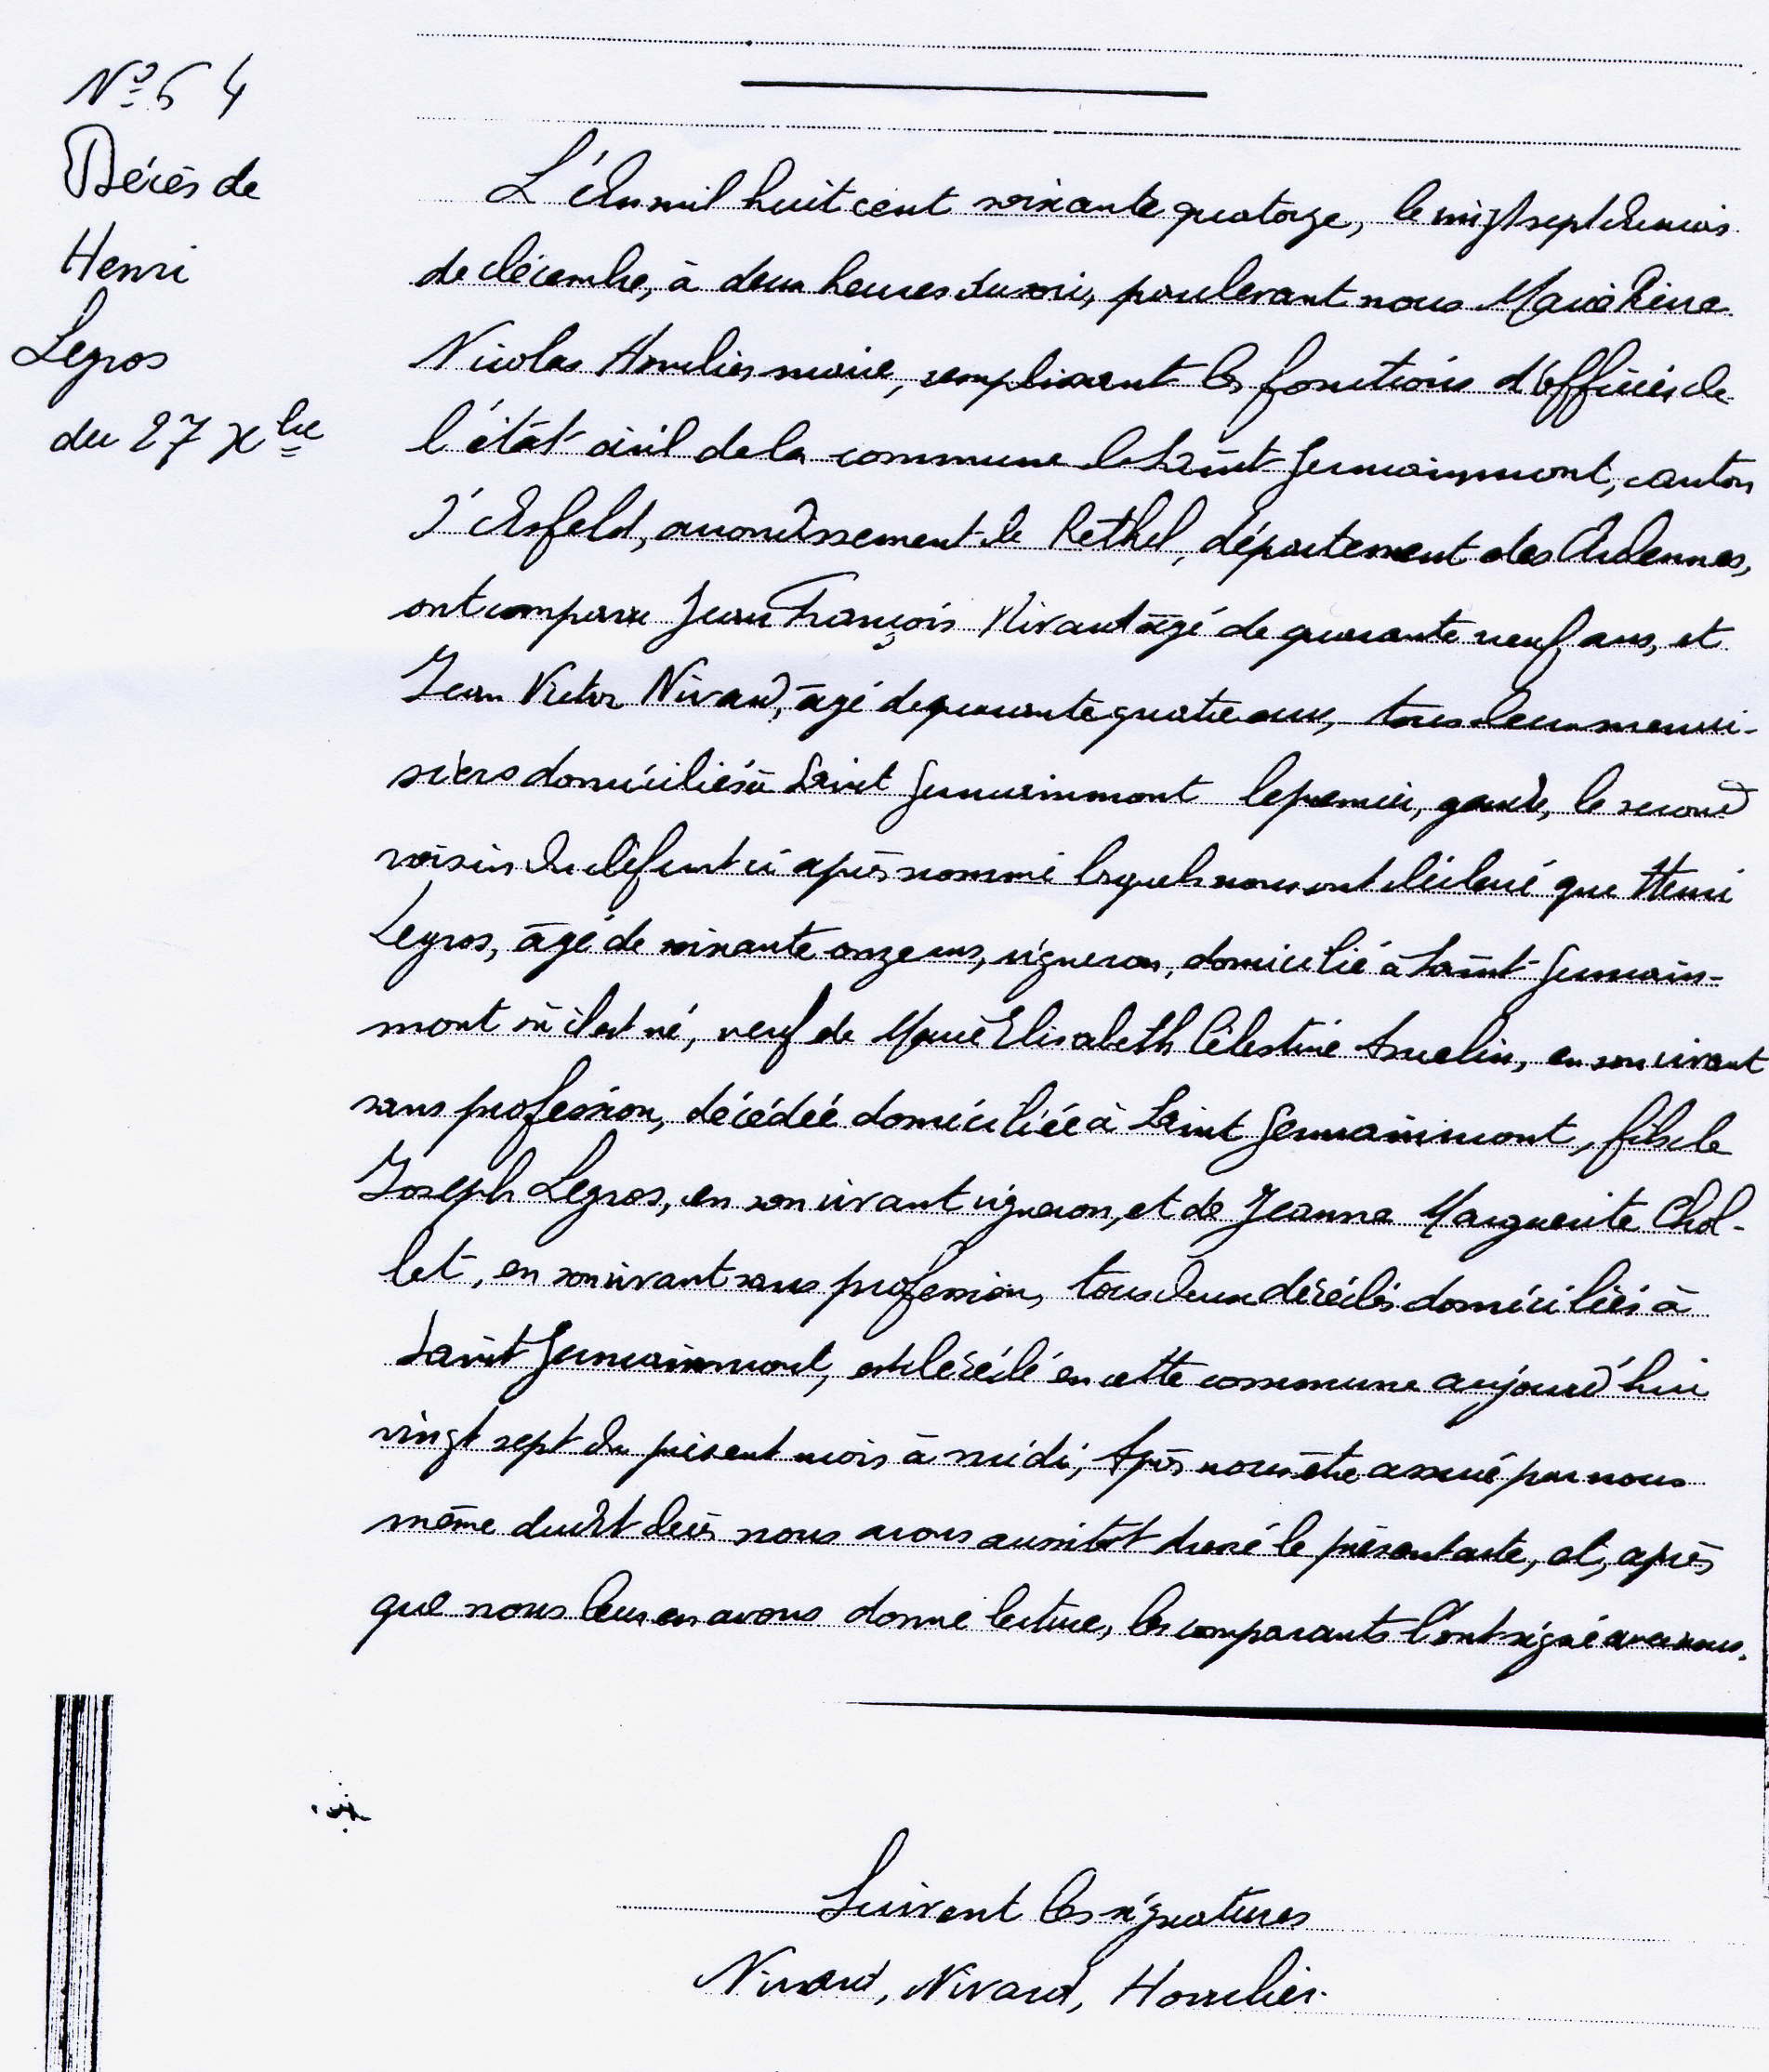 N° 64
Décès de
Henri
Legros
du 27 Xbre
L'An mil huit cent soixante quatorze, le vingt sept du mois
de décembre, à deux heures du soir, par devant nous Marie Pierre
Nicolas maire, remplissant les fonctions d'officier de
l'état civil de la commune de Saint Germainmont, canton
d'Asfeld, arrondissement de Rethel, département des Ardennes,
ont comparu Jean François Nivard âgé de quarante neuf ans, et
Jean Victor Nivard, âgé de quarante quatre ans, tous deux menui-
siers domiciliés à Saint Germainmont le premier, gendre, le second
voisin du défunt ci après nommé lesquels nous ont déclaré que Henri
Legros, âgé de soixante onze ans, vigneron, domicilié à Saint-Germain-
mont où il est né, veuf de Marie Elisabeth Célestine Amelin, en son vivant
sans profession, décédée domiciliée à Saint Germainmont, fils de
Joseph Legros, en son vivant vigneron, et de Jeanne Marguerite Chol-
let, en son vivant sans profession, tous deux décédés domiciliés à
Saint Germainmont, est décédé en cette commune aujourd'hui
vingt sept du présent mois à midi, Après nous être assuré par nous
même dudit décès nous avons aussitôt dressé le présent acte, et, après
que nous leur en avons donné lecture, les comparants l'ont signé avec nous.
Suivent les signatures
Nivard, Nivard,